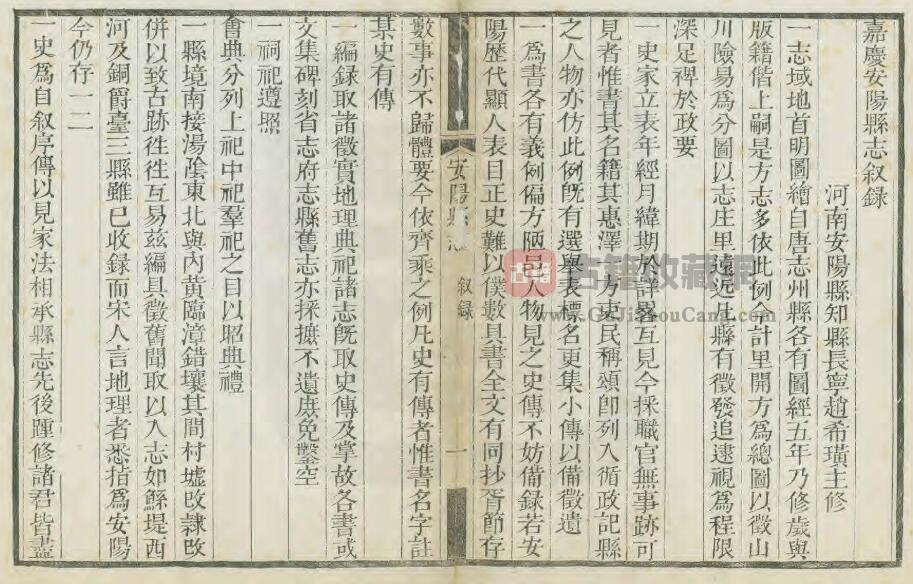 嘉慶安陽縣志叙録
河南安陽縣知縣長寧趙希璜主修
一志域地首明圖繪自唐志州縣各有圖經五年乃修歲與
版籍偕上嗣是方志多依此例今計里開方為總圖以徵山
川險易為分圖以志庄里遠近此縣有徵發追逮視為程限
深足裨於政要
一史家立表年經月緯期於詳畧互見今採職官無事跡可
見者惟書其名籍其惠澤一方吏民稱頌卽列入循政記縣
之人物亦仿此例旣有選舉表標名更集小傳以備徵遺
一為書各有義例偏方陋邑人物見之史傳不妨備録若安
陽歷代顯人表目正史難以僕數具書全文有同抄胥節存
安陽縣志
叙録
一
數事亦不歸體要今依齊乘之例凡史有傳者惟書名字註
某史有傳
一編録取諸徵實地理典祀諸志旣取史傳及掌故各書或
文集碑刻省志府志縣舊志亦採摭不遺庶免鑿空
一祠祀遵照
會典分列上祀中祀羣祀之目以昭典禮
一縣境南接湯陰東北與內黃臨漳錯壤其間村墟改隷改
併以致古跡徃徃互易茲編具徵舊聞取以入志如鯀堤西
河及銅爵臺三縣雖已收録而宋人言地理者悉指為安陽
今仍存一二
一史為自叙序傳以見家法相承縣志先後踵修諸君皆盡
古籍
古籍收藏網
www.GuJiShouCang.com